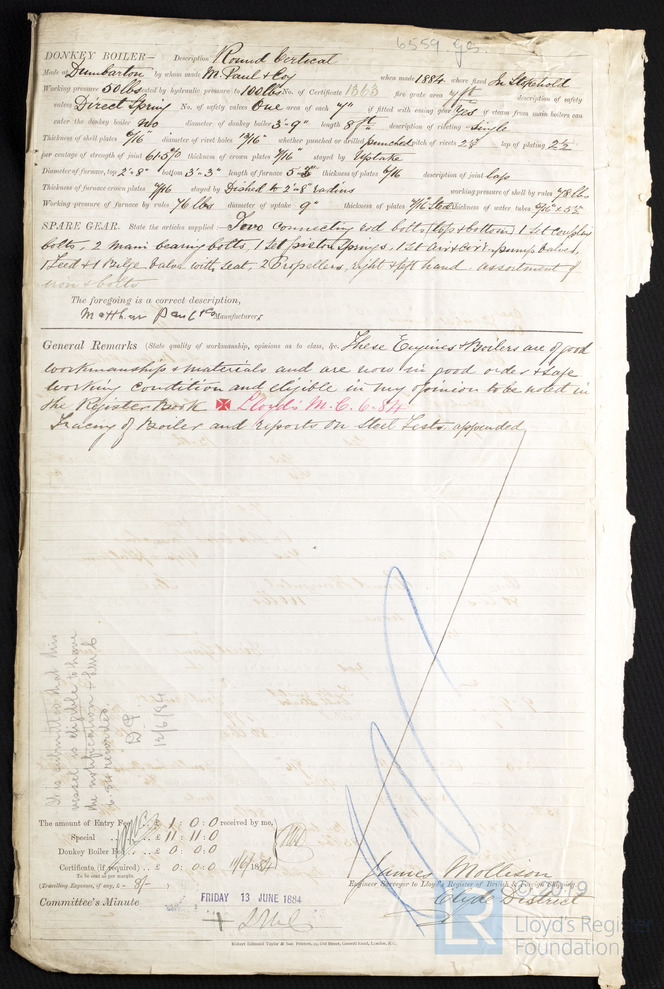 6559 Gls.
DONKEY BOILER— Description Round Vertical
Made at Dumbarton by whom made M. Paul & Coy when made 1884 where fixed In Stokehold
Working pressure 50 lbs tested by hydraulic pressure to 100 lbs No. of Certificate 1363 fire grate area 7 ft description of safety
valves Direct Spring No. of safety valves One area of each 7" if fitted with easing gear Yes if steam from main boilers can
enter the donkey boiler No diameter of donkey boiler 3'-9" length 8 ft description of riveting Single
Thickness of shell plates 6/16" diameter of rivet holes 13/16" whether punched or drilled punched pitch of rivets lap of plating 2½
per centage of strength of joint 61.5% thickness of crown plates 7/16" stayed by Uptake
Diameter of furnace, top 2'-8" bottom 3'-3" length of furnace thickness of plates 6/16 description of joint Lap
Thickness of furnace crown plates 7/16 stayed by Dished to 2'-8" radius working pressure of shell by rules 78 lbs
Working pressure of furnace by rules 76 lbs diameter of uptake 9" thickness of plates thickness of water tubes
SPARE GEAR. State the articles supplied :— Two connecting rod bolts (top & bottom) 1 set coupling
bolts, 2 main bearing bolts, 1 set piston springs, 1 set air & circ. pump valves,
1 Feed & 1 Bilge valve with seat, 2 Propellers, right & left hand. assortment of
iron & bolts
The foregoing is a correct description,
Matthew Paul & Co Manufacturers
General Remarks (State quality of workmanship, opinions as to class, &c. These Engines & Boilers are of good
workmanship & materials and are now in good order & safe
working condition and eligible in my opinion to be noted in
the Register Book ✠ Lloyd's M.C. 6.84
Tracing of Boiler and reports on Steel Tests appended
It is submitted that this
vessel is eligible to have
the notification
6.84 recorded.
12/6/84
The amount of Entry Fee .. £ 1 : 0 : 0 received by me,
Special .. £ 11 : 11 : 0
Donkey Boiler Fee .. £ 0 : 0 : 0
Certificate (if required) .. £ 0 : 0 : 0 11/6/1884
To be sent as per margin.
(Travelling Expenses, if any, £ - 8/- )
James Mollison
Engineer Surveyor to Lloyd's Register of British & Foreign Shipping
Clyde District
Committee's Minute
FRIDAY 13 JUNE 1884
+ LMC
Robert Edmund Taylor & Son, Printers, 19, Old Street, Goswell Road, London, E.C.
© 2019
LR
Lloyd's Register
Foundation